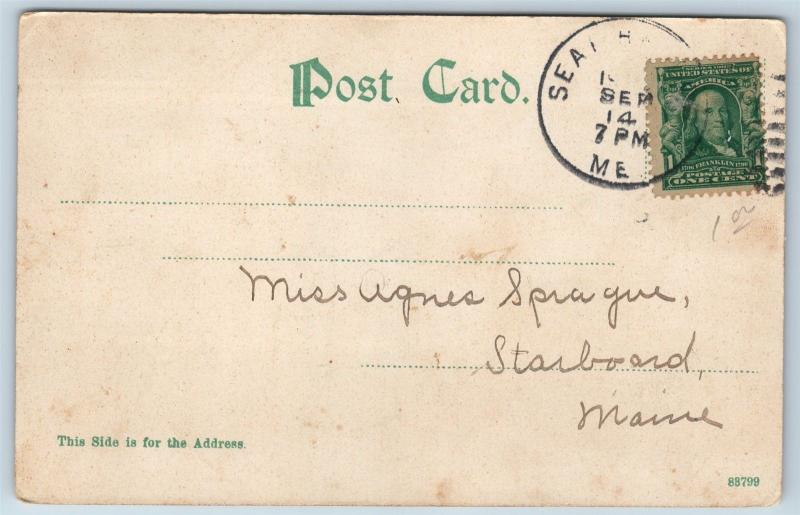 Post Card.
SEP
14
7 PM
ME
SERIES 1902
UNITED STATES OF
AMERICA
1706 FRANKLIN 1790
POSTAGE
1 ONE CENT
1 00
Miss Agnes Sprague,
Starboard,
Maine
This Side is for the Address.
88799